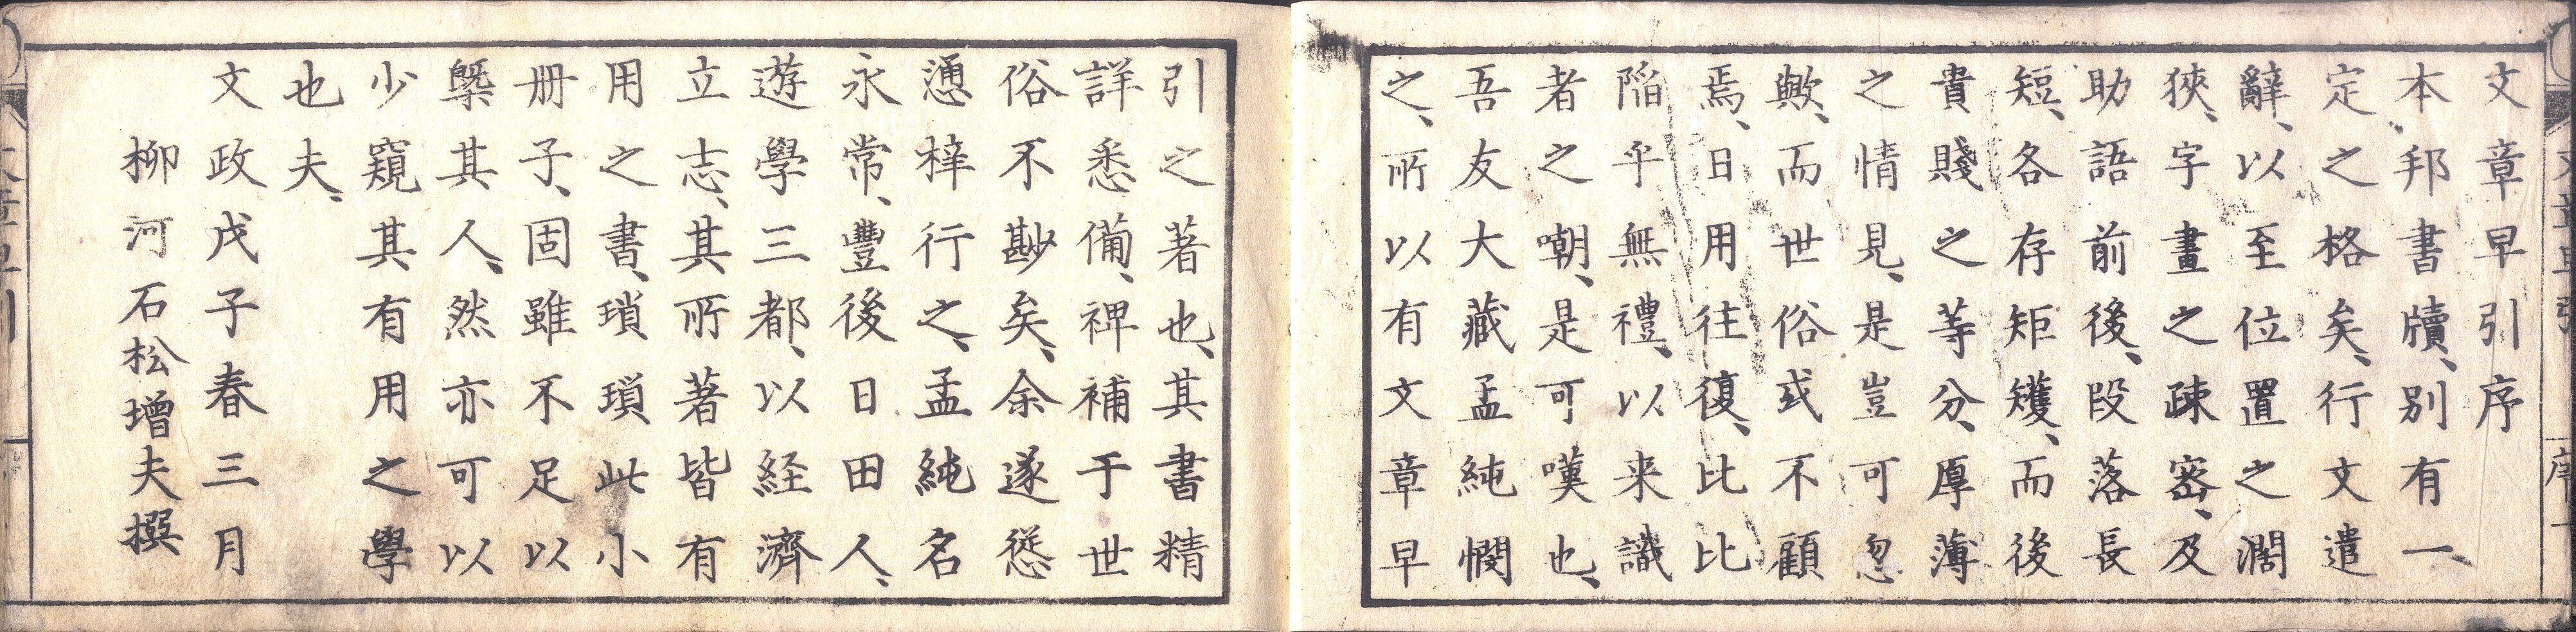 文章早引序
本邦書牘、別有一
定、之格矣、行文遣
辭、以至位置之濶
狹、字畫之疎密、及
助語前後、段落長
短、各存矩矱、而後
貴賤之等分、厚薄
之情見、是豈可忽
歟、而世俗或不顧
焉、日用往復、比比
陥乎無禮、以来識
者之嘲、是可嘆也、
吾友大藏孟純憫
之、所以有文章早
引之著也、其書精
詳悉備、裨補于世
俗不尠矣、余遂慫
慂梓行之、孟純名
永常、豐後日田人、
遊學三都、以経濟
立志、其所著皆有
用之書、瑣瑣此小
册子、固雖不足以
槩其人、然亦可以
少窺其有用之學
也夫、
文政戊子春三月
柳河石松增夫撰